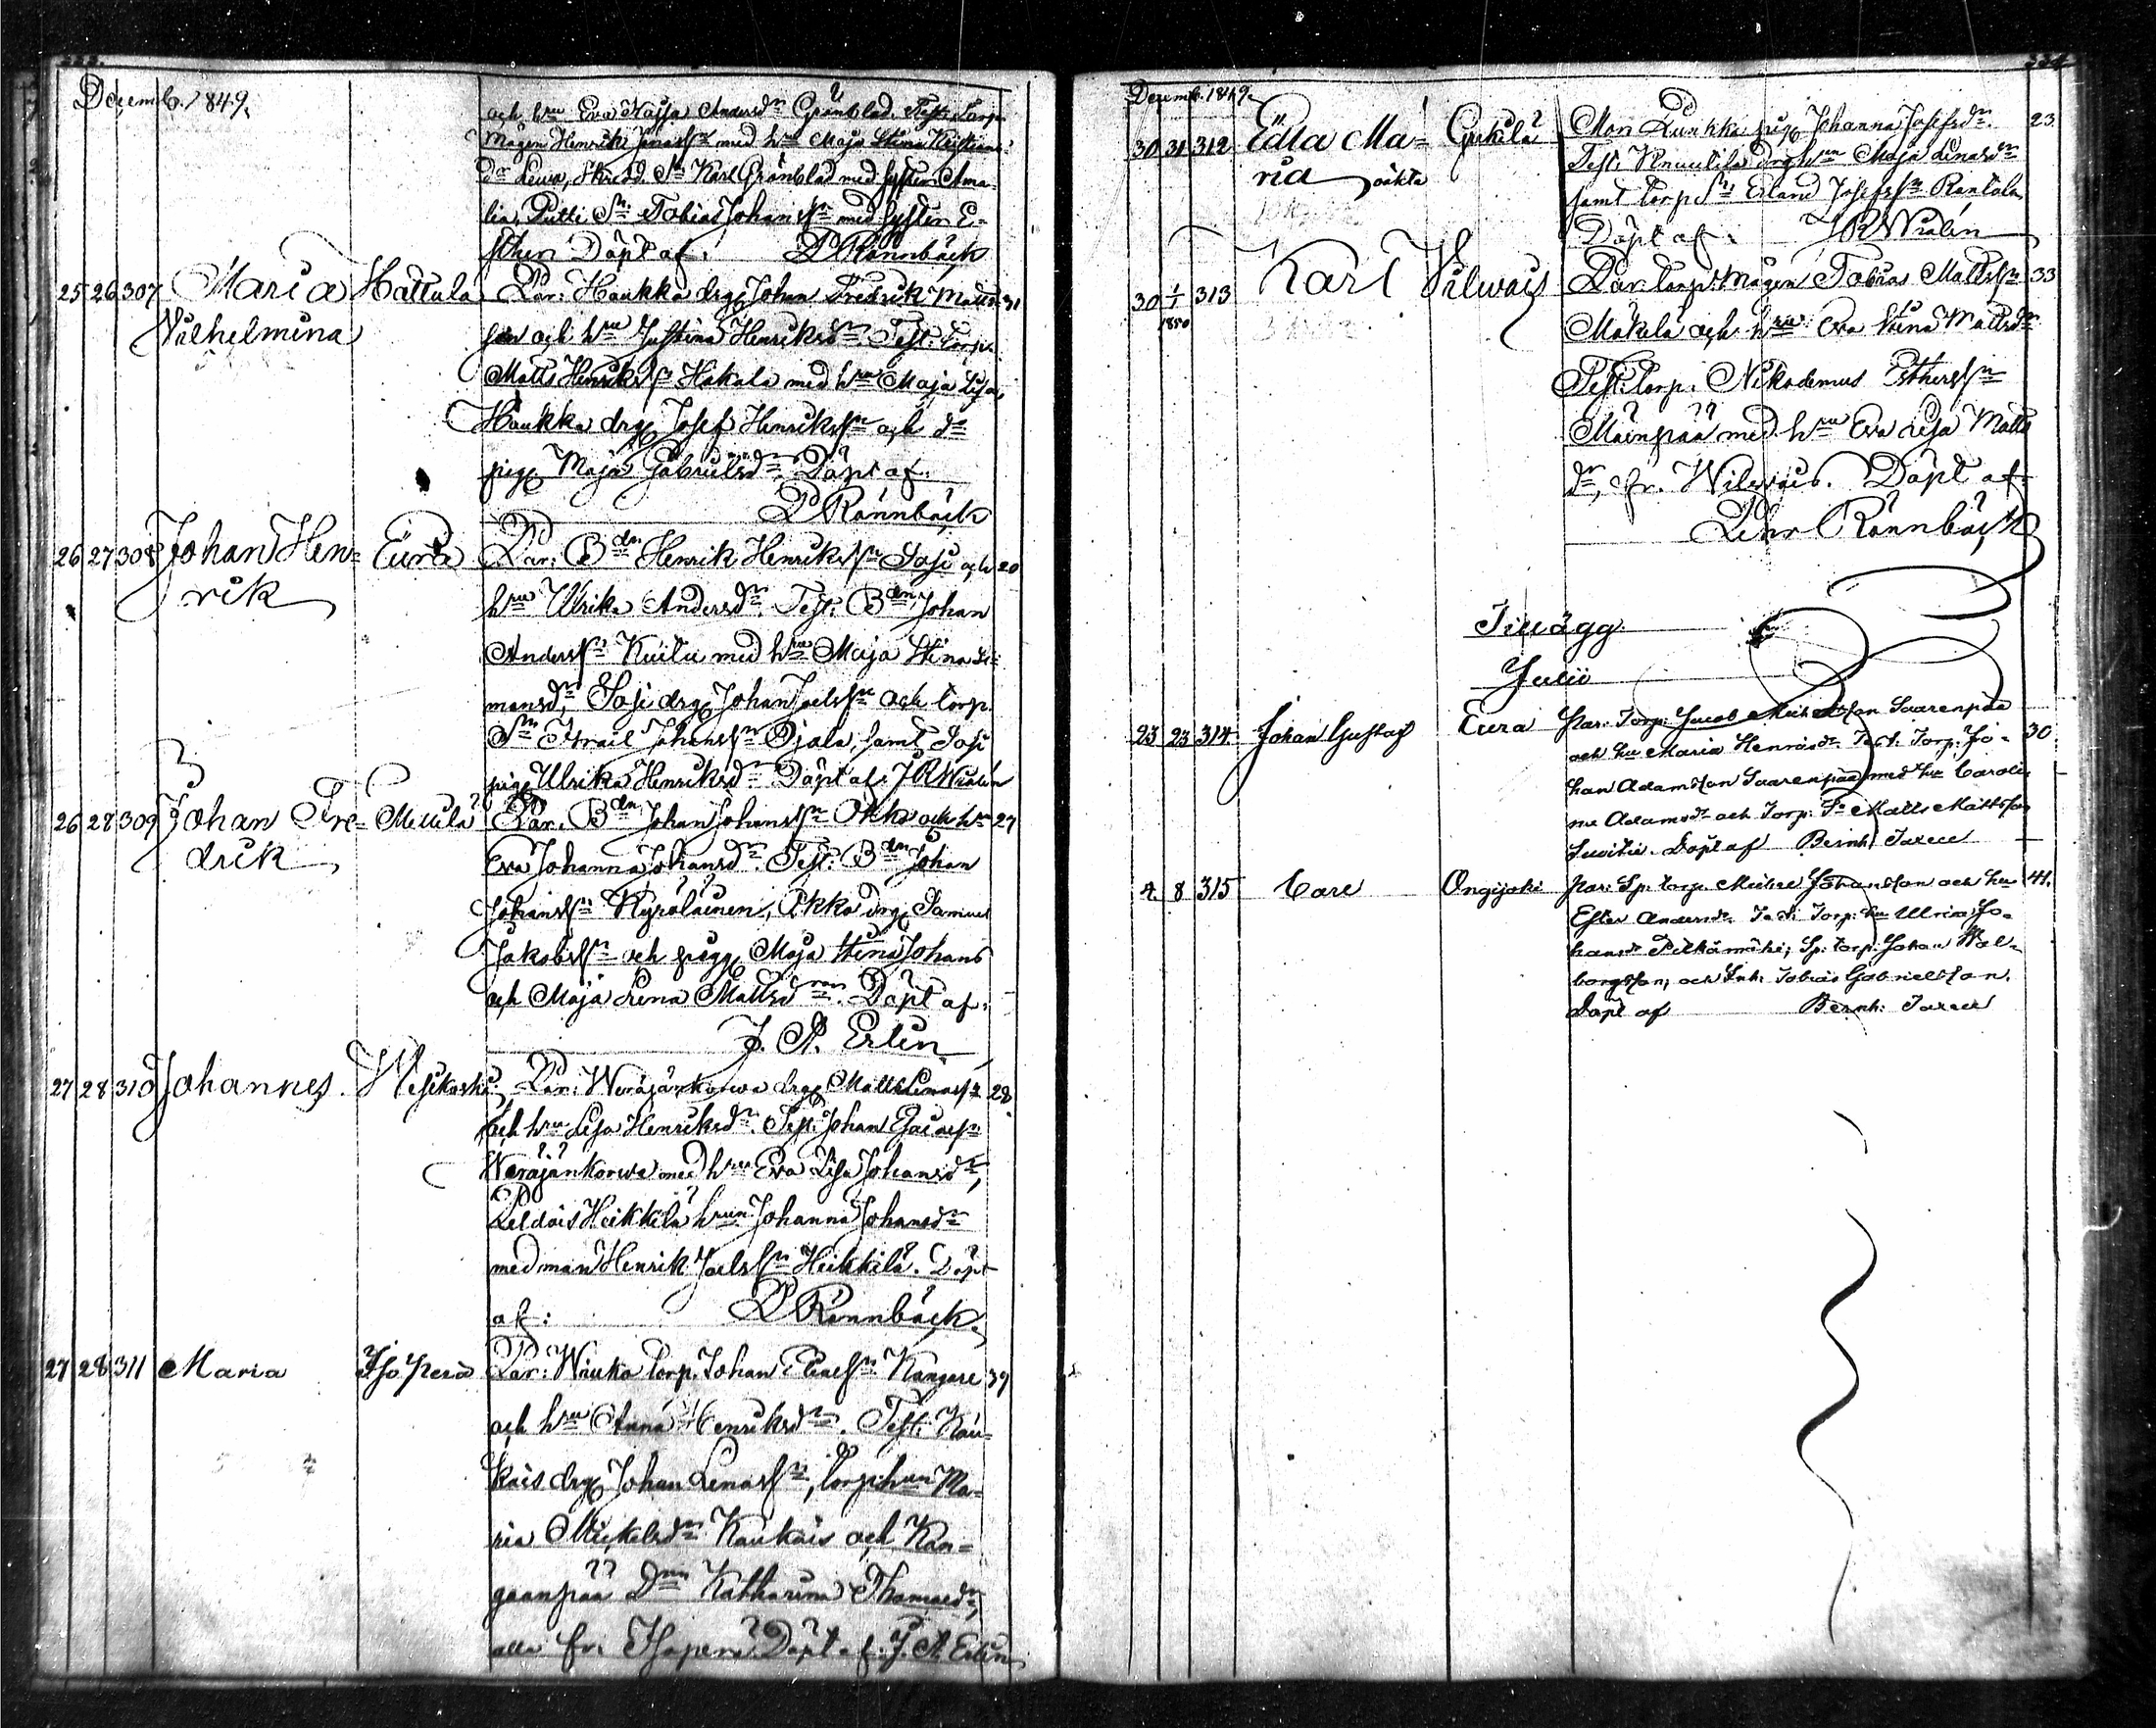 Decemb. 1849.
och hru Eva Kajsa Andersdr Grönblad. Test: Torp.
Mågen Henrik Jonass. med hru Maja Stina Kristians
dr Lewa, Karl Grönblad med syster Ama-
lia, Putti Sn Tobias Johanssn med syster E-
sther. Döpt af: D Rönnbäck
25 26 307 Maria Hattula Par: Haukka drg Johan Fredrik Matts- 31
Wilhelmina son och hru Justina Henriksdr. Test: Torp.
Matts Henrikssn Hakala med hru Maja Lisa,
Haukka drg Josef Henrikssn och do
pig. Maja Gabrielsdr. Döpt af:
D Rönnbäck
26 27 308 Johan Hen- Eura Par: Bdn Henrik Henrikssn Sasi och 20
rik hru Ulrika Andersdr. Test: Bdn Johan
Anderssn Kuitu med hru Maja Stina Si-
monsdr, Sasi drg Johan Joelssn och torp.
Sn Israel Johanssn Ojala, samt Sasi
pig. Ulrika Henriksdr. Döpt af: J R Widlén
26 28 309 Johan Fre- Mullila Par: Bdn Johan Johanssn Okko och hru 27
drik Eva Johanna Johansdr. Test: Bdn Johan
Johanssn Kyröläinen, Okko drg Samuel
Jakobssn och pigg. Maja Stina Johans
och Maja Lena Mattsdrar. Döpt af:
J. A. Erlin
27 28 310 Johannes. Wesikoski Par: Weräjänkorwa drg Matts 28
och hru Lisa Henriksdr. Test: Johan Esaiaesn
Weräjänkorwa med hru Eva Lisa Johansdr,
Peldois Heikkilä hrun Johanna Johansdr
med man Henrik Joelssn Heikkilä. Döpt
af: D Rönnbäck.
27 28 311 Maria Isoperä Par: Torp. Johan Kangare 39
och hru Anna Henriksdr. Test: Kau-
kais drg Johan torp:hun Ma-
ria Mickelsdr Kaukais och Kan-
gaanpää Katharina Thomasdr,
alla fr. Isoperä. Döpt af: J. A. Erlin
Decemb. 1849.
30 31 312 Edla Ma- Mor: Kunkka pig Johanna Josefsdr. 23
ria oäkta Test: Knuutila drg hrun Maja
samt torp. Sn Erland Josefssn Rantala
Döpt af: J R Widlén
30 1/1 1850 313 Karl Wilwais Par: torp:mågen Tobias Mattssn 33
Mäkilä och hru Eva Stina Mattsdr.
Test: Torp. Nikodemus Estherssn
Mäenpää med hru Eva Lisa Matts
dr, fr. Wilwais. Döpt af:
Pehr Rönnbäck
Tillägg.
Julii
23 23 314 Johan Gustaf Eura Par: Torp: Jacob Michelsson Saarenpää 30
och hu Maria Henriksdr. Test: Torp: Jo-
han Adamsson Saarenpää med hu Caroli-
na Adamsdr och Torp: Sn Matts Mattsson
Döpt af Bernh:
4 8 315 Carl Ongijoki Par: Sp: torp. Johansson och hu 41.
Ester Andersdr. Test: Torp: hu Ulrica Jo-
hansdr Pitkämäki, Sp: torp. Johan Wal-
borgsson, och Inh. Tobias Gabrielsson.
Döpt af Bernh: